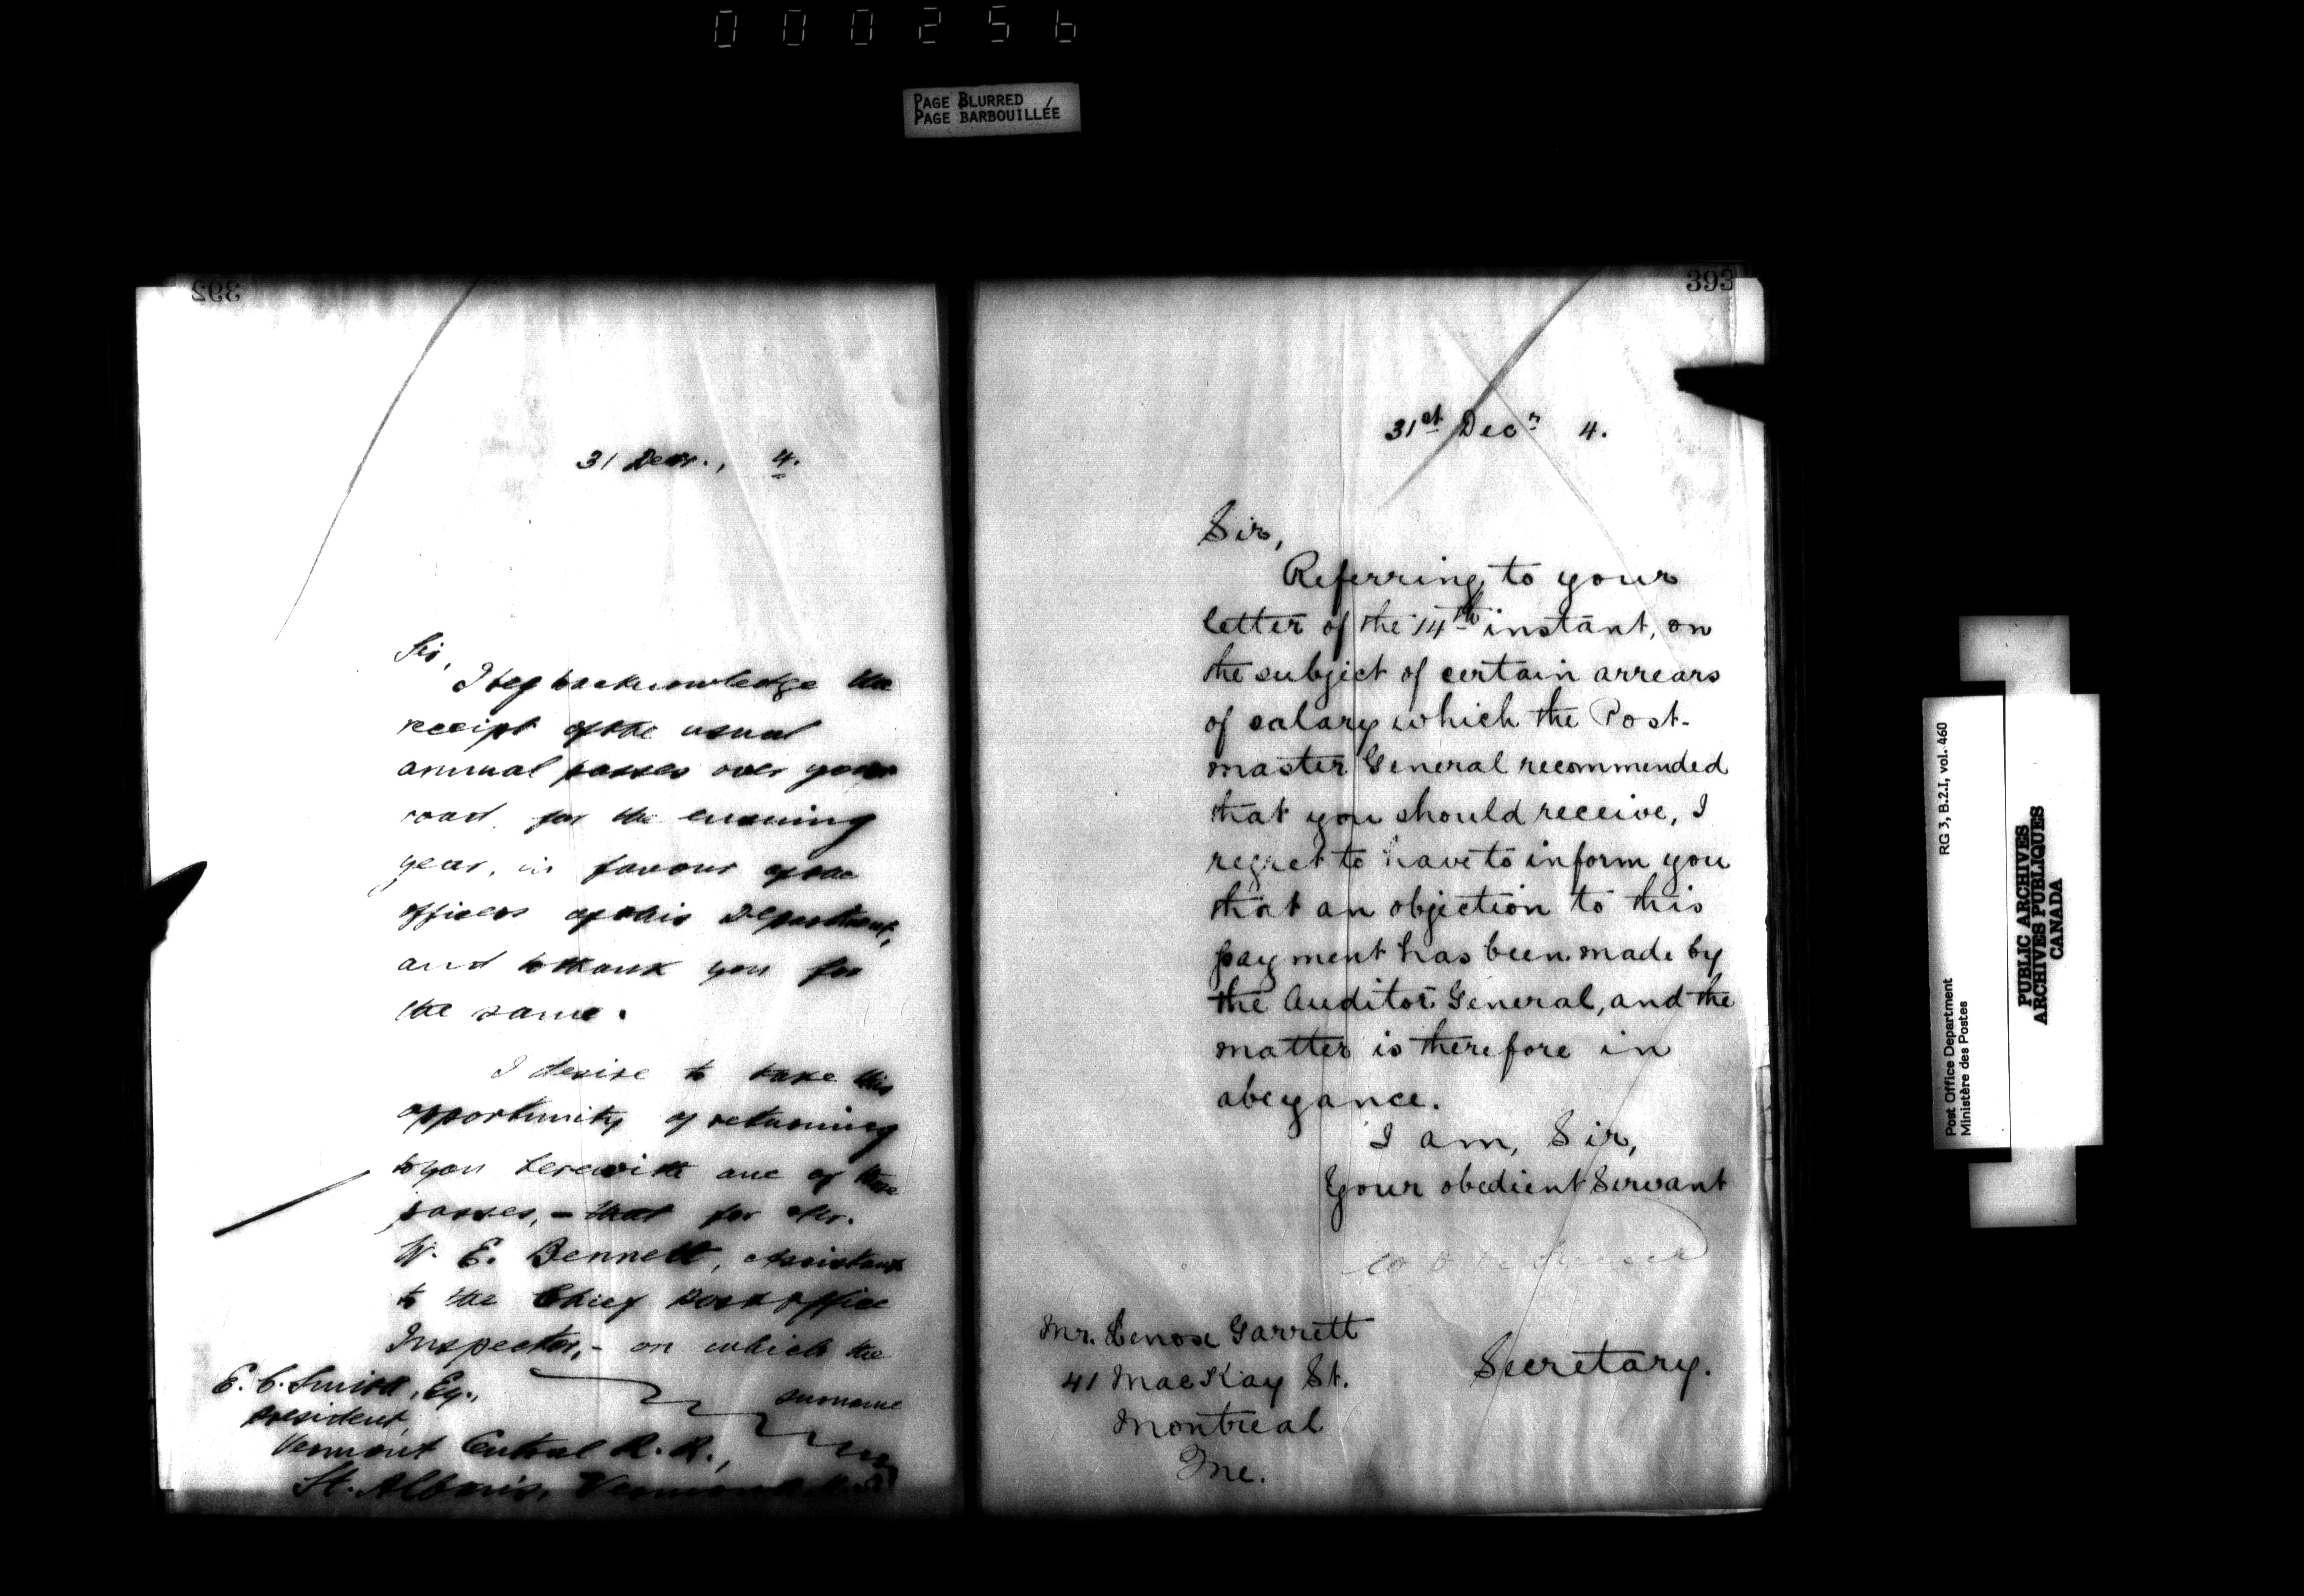 000256
PAGE BLURRED
PAGE BARBOUILLÉE
392
31 Decr., 4.
Sir,
I beg to acknowledge the
receipt of the usual
annual passes over your
road, for the ensuing
year, in favour of the
officers of this Department,
and to thank you for
the same.
I desire to take this
opportunity of returning
to you herewith one of these
passes, - that for Mr.
W. E. Bennett, Assistant
to the Chief Post Office
Inspector, - on which the
surname
E. C. Smith, Esq.,
President,
Vermont Central R. R.,
St. Albans, Vermont
393
31st Decr 4.
Sir,
Referring to your
letter of the 14th instant, on
the subject of certain arrears
of salary which the Post-
master General recommended
that you should receive, I
regret to have to inform you
that an objection to this
payment has been made by
the Auditor General, and the
matter is therefore in
abeyance.
I am, Sir,
Your obedient Servant
Secretary.
Mr. Lenox Garrett
41 MacKay St.
Montreal
Post Office Department
Ministère des Postes
RG 3, B.2.I, vol. 460
PUBLIC ARCHIVES
ARCHIVES PUBLIQUES
CANADA